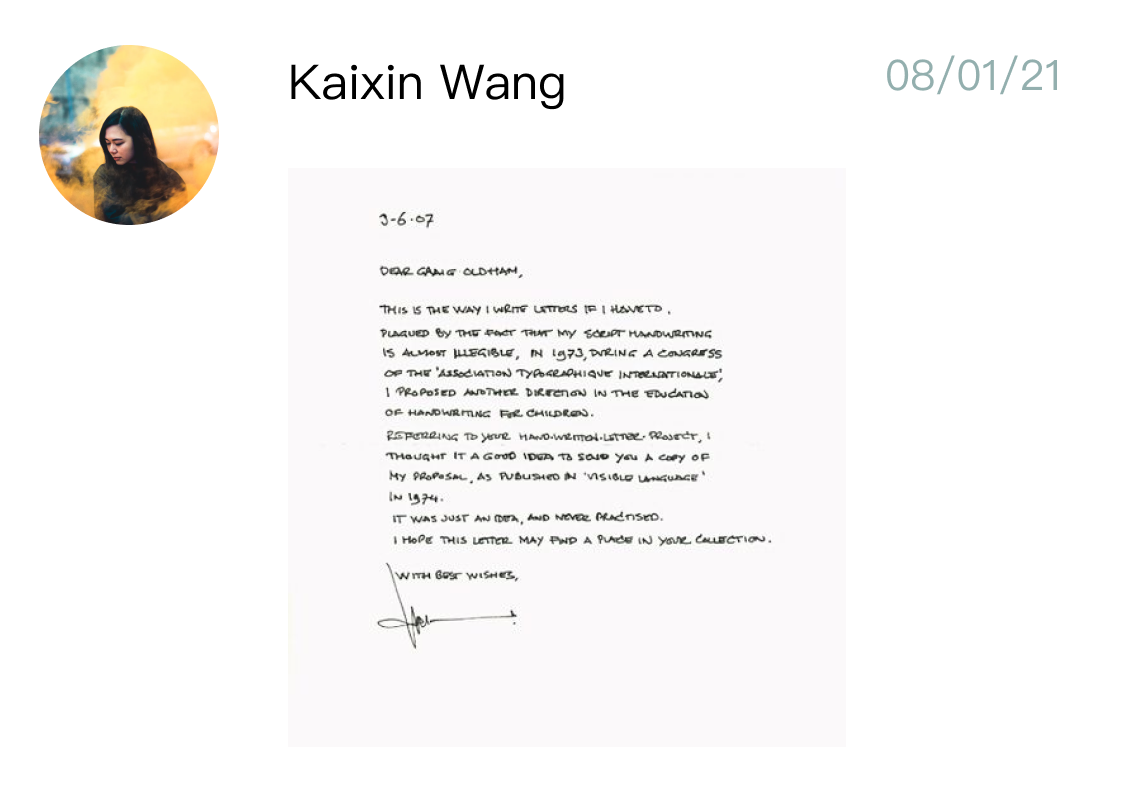 Kaixin Wang
08/01/21
3-6-07
DEAR CRAIG OLDHAM,
THIS IS THE WAY I WRITE LETTERS IF I HAVE TO.
PLAGUED BY THE FACT THAT MY SCRIPT HANDWRITING
IS ALMOST ILLEGIBLE, IN 1973, DURING A CONGRESS
OF THE 'ASSOCIATION TYPOGRAPHIQUE INTERNATIONALE',
I PROPOSED ANOTHER DIRECTION IN THE EDUCATION
OF HANDWRITING FOR CHILDREN.
REFERRING TO YOUR HAND-WRITTEN-LETTER-PROJECT, I
THOUGHT IT A GOOD IDEA TO SEND YOU A COPY OF
MY PROPOSAL, AS PUBLISHED IN 'VISIBLE LANGUAGE'
IN 1974.
IT WAS JUST AN IDEA, AND NEVER PRACTISED.
I HOPE THIS LETTER MAY FIND A PLACE IN YOUR COLLECTION.
WITH BEST WISHES,